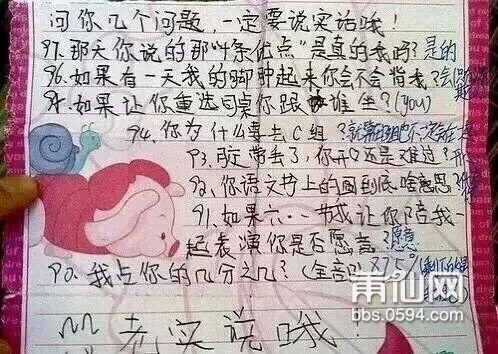 问你几个问题，一定要说实话哦！
97. 那天你说的那"4条优点"是真的我吗？是的
96. 如果有一天我的脚肿起来你会不会背我？会
95. 如果让你重选同桌你跟谁坐？(you)
94. 你为什么要去C组？
93. 发带丢了，你开心还是难过？
92. 你语文书上的画到底啥意思？
91. 如果六·一节我让你陪我一
起表演你是否愿意？愿意
90. 我占你的几分之几？(全部) 87.5%
老实说哦！
莆仙网
bbs.0594.com